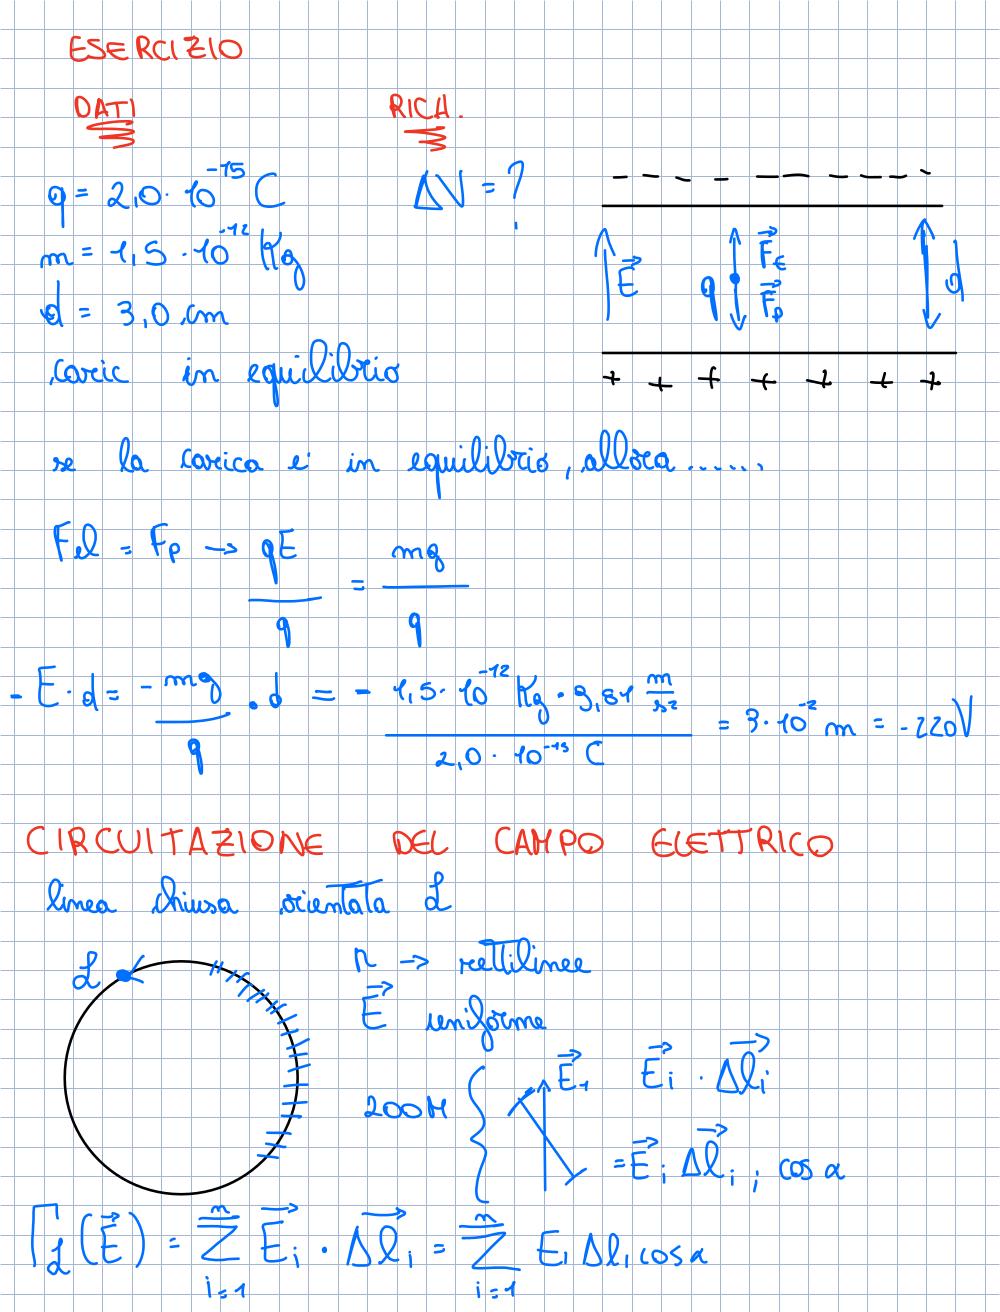 ESERCIZIO
DATI RICH.
q = 2,0 · 10⁻¹⁵ C ΔV = ?
m = 1,5 · 10⁻¹² Kg
d = 3,0 cm
caric in equilibrio
- - - - - - - - -
E⃗ q F⃗E F⃗p d
+ + + + + + +
se la carica e' in equilibrio, allora ......
Fel = Fp → qE/q = mg/q
- E · d = - mg/q · d = - 1,5 · 10⁻¹² Kg · 9,81 m/s² / 2,0 · 10⁻¹⁵ C = 3 · 10⁻² m = -220V
CIRCUITAZIONE DEL CAMPO ELETTRICO
linea chiusa orientata ℒ
ℒ n → rettilinee
E⃗ uniforme
E⃗₁ E⃗i · Δl⃗i
= E⃗i Δl⃗i, cos α
Γℒ(E⃗) = Σⁿi=1 E⃗i · Δl⃗i = Σⁿi=1 Ei Δli cos α